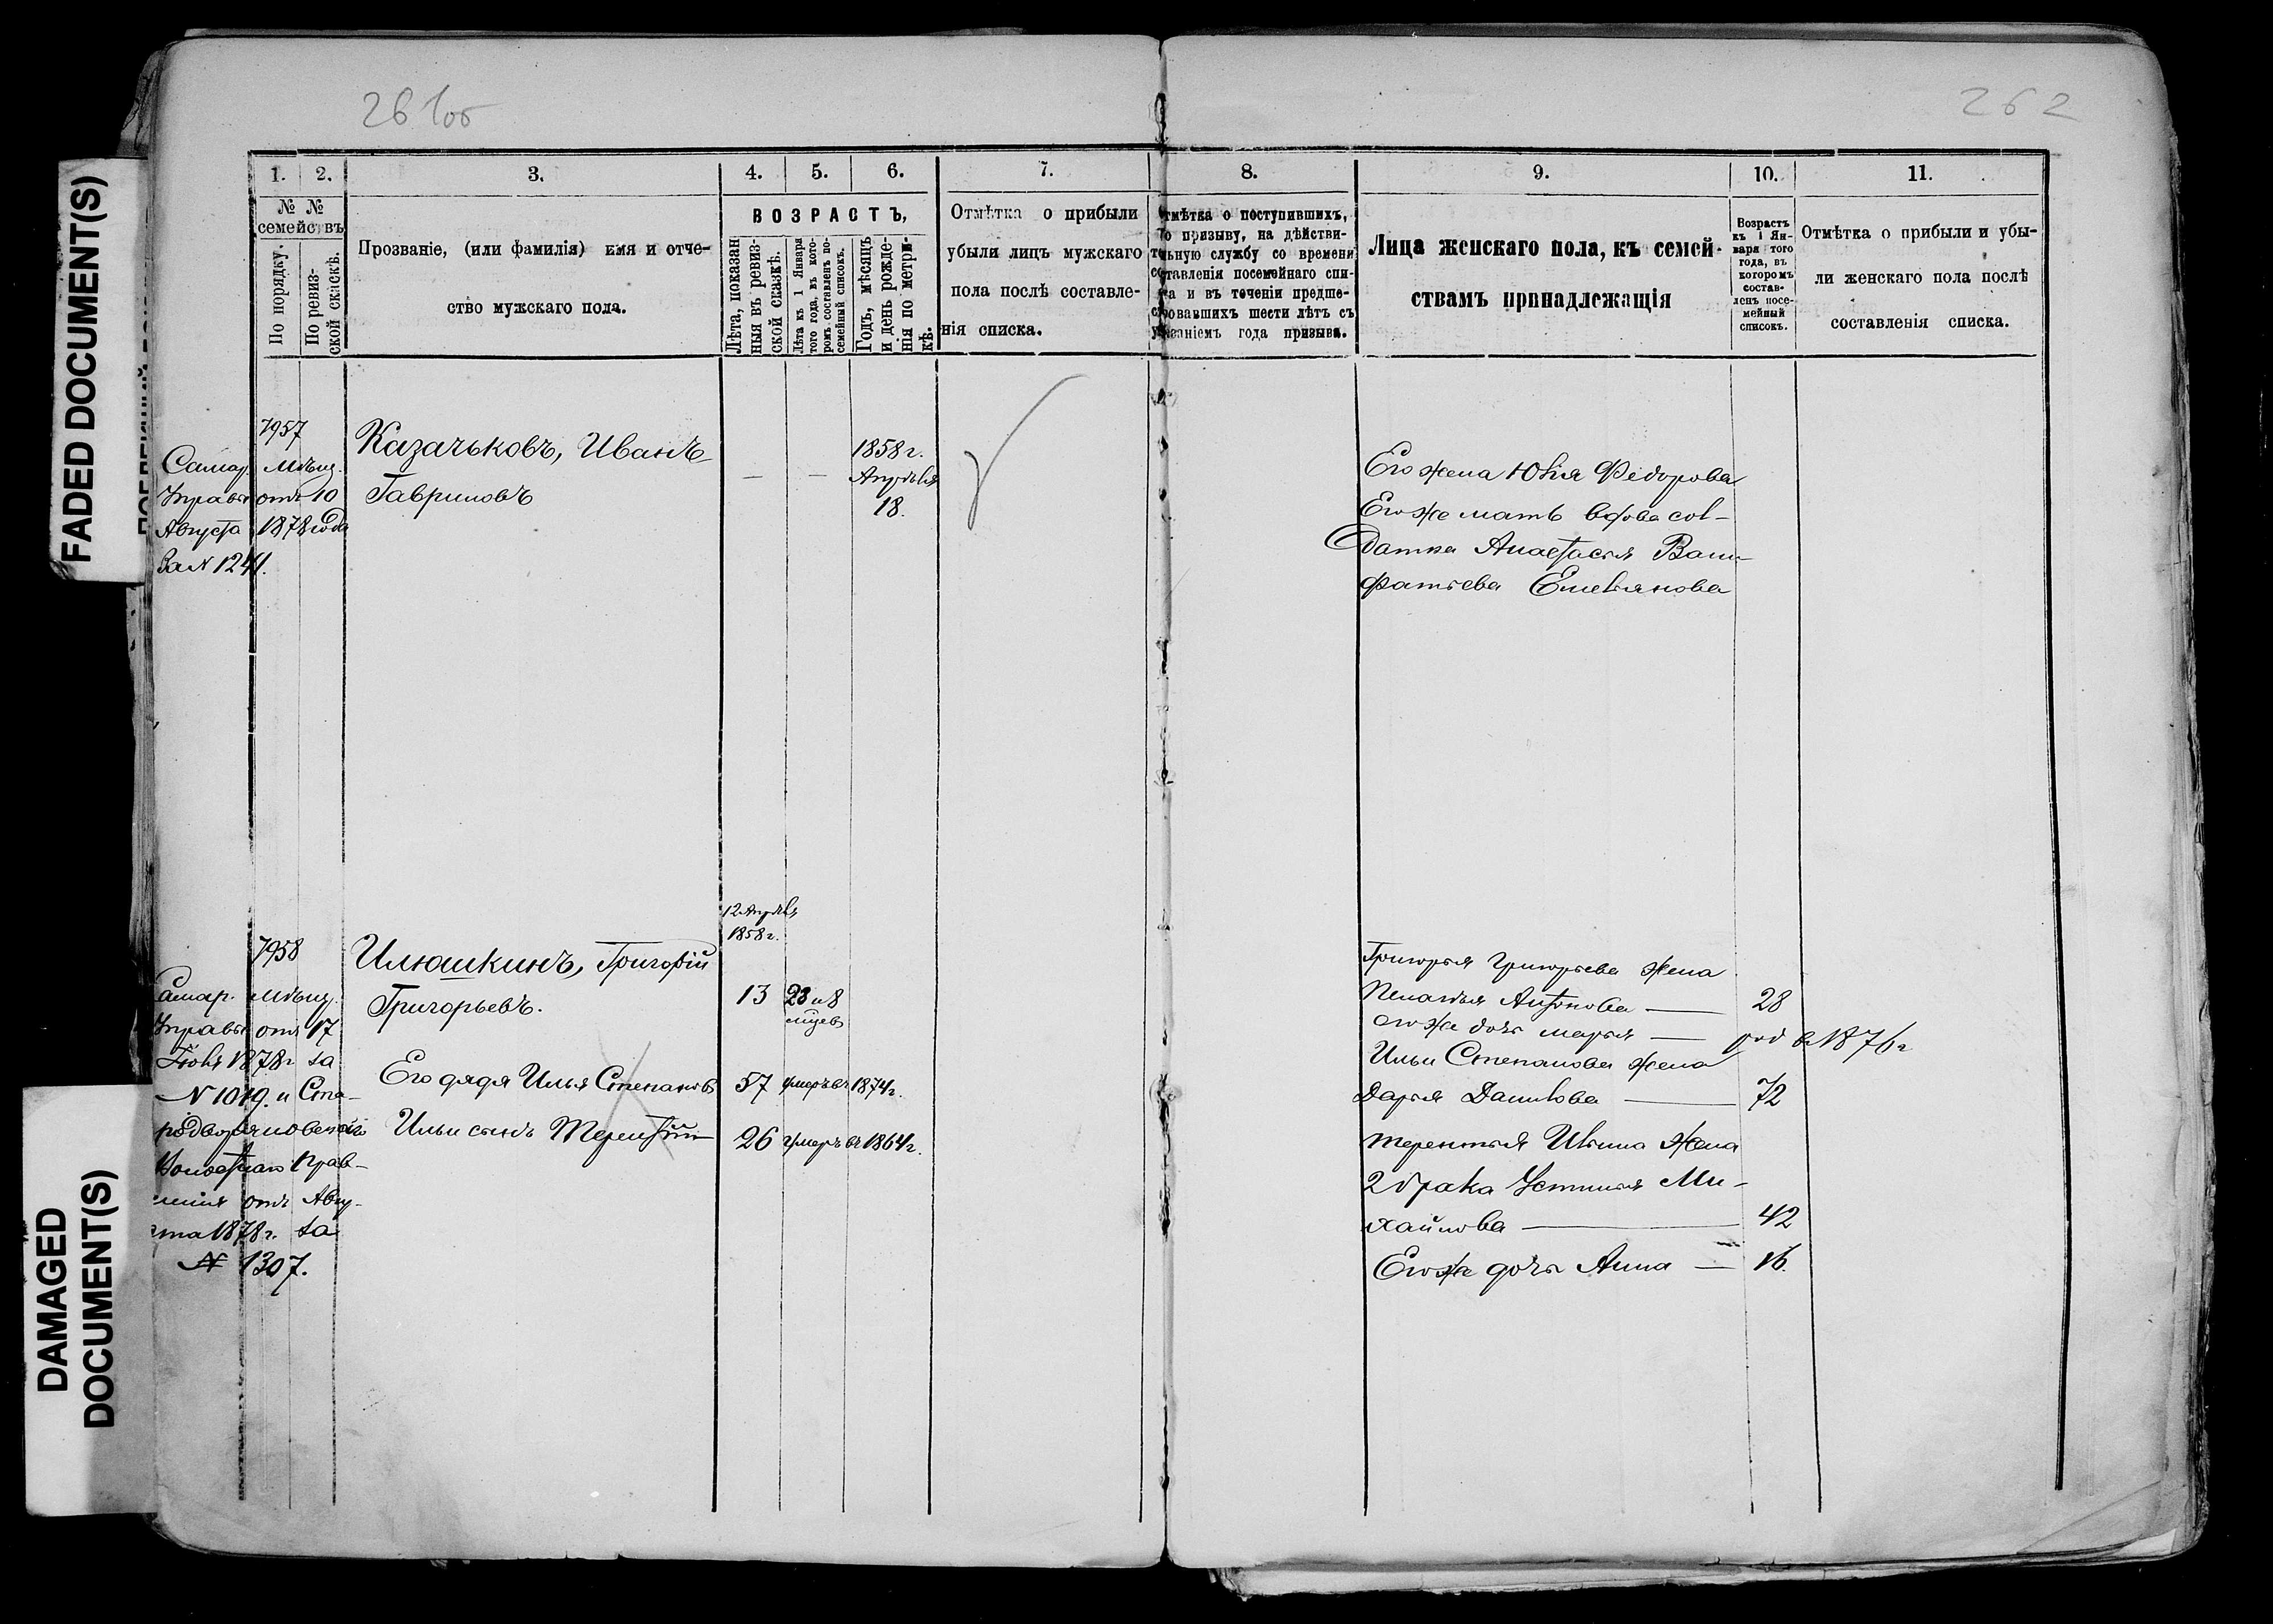 FADED DOCUMENT(S)
DAMAGED
DOCUMENT(S)
261об
262
1. 2. 3. 4. 5. 6. 7. 8. 9. 10. 11.
№ №
семействъ
По порядку.
По ревиз-
ской скаскѣ.
Прозваніе, (или фамилія) имя и отче-
ство мужскаго пола.
ВОЗРАСТЪ,
Лѣта, показан
ныя въ ревиз-
ской сказкѣ.
Лѣта къ 1 Января
того года, въ кото-
ромъ составленъ по-
семейный списокъ.
Годъ, мѣсяцъ
и день рожде-
нія по метри-
кѣ.
Отмѣтка о прибыли
убыли лицъ мужскаго
пола послѣ составле-
нія списка.
тмѣтка о поступившихъ,
по призыву, на дѣйстви-
тельную службу со времени
составленія посемейнаго спи-
ска и въ теченіи предше-
ствовавшихъ шести лѣтъ съ
указаніемъ года призыва.
Лица женскаго пола, къ семей-
ствамъ принадлежащія
Возрастъ
къ 1 Ян-
варя того
года, въ
которомъ
состав-
ленъ посе-
мейный
списокъ.
Отмѣтка о прибыли и убы-
ли женскаго пола послѣ
составленія списка.
7957
Самар. Мѣщ.
Управы отъ 10
Августа 1878 года
За N 1241.
Казачьковъ, Иванъ
Гавриловъ
— —
1858 г.
Апрѣля
18.
Его жена Юлія Федорова
Его же мать вдова сол-
датка Анастасія Вани-
фатьева Емельянова
7958
Самар. Мѣщ.
Управы отъ 17
Іюля 1878 г за
N 1019. и Ста-
родворяновскаго
Волостнаго Прав-
ленія отъ Авгу-
ста 1878 г. за
N 1307.
12 Апрѣля
1858 г.
Илюшкинъ, Григорій
Григорьевъ.
13 23 и 8
мѣсяцевъ
Его дядя Илья Степановъ 57 умеръ въ 1874 г.
Ильи сынъ Терентій 26 умеръ въ 1864 г.
Григорья Григорьева жена
Пелагея Антонова — 28
его же дочь Марья — род въ 1876 г
Ильи Степанова жена
Дарья Данилова — 72
Терентья Ильина жена
2 брака Устинья Ми-
хайлова — 42
Его же дочь Анна — 16.